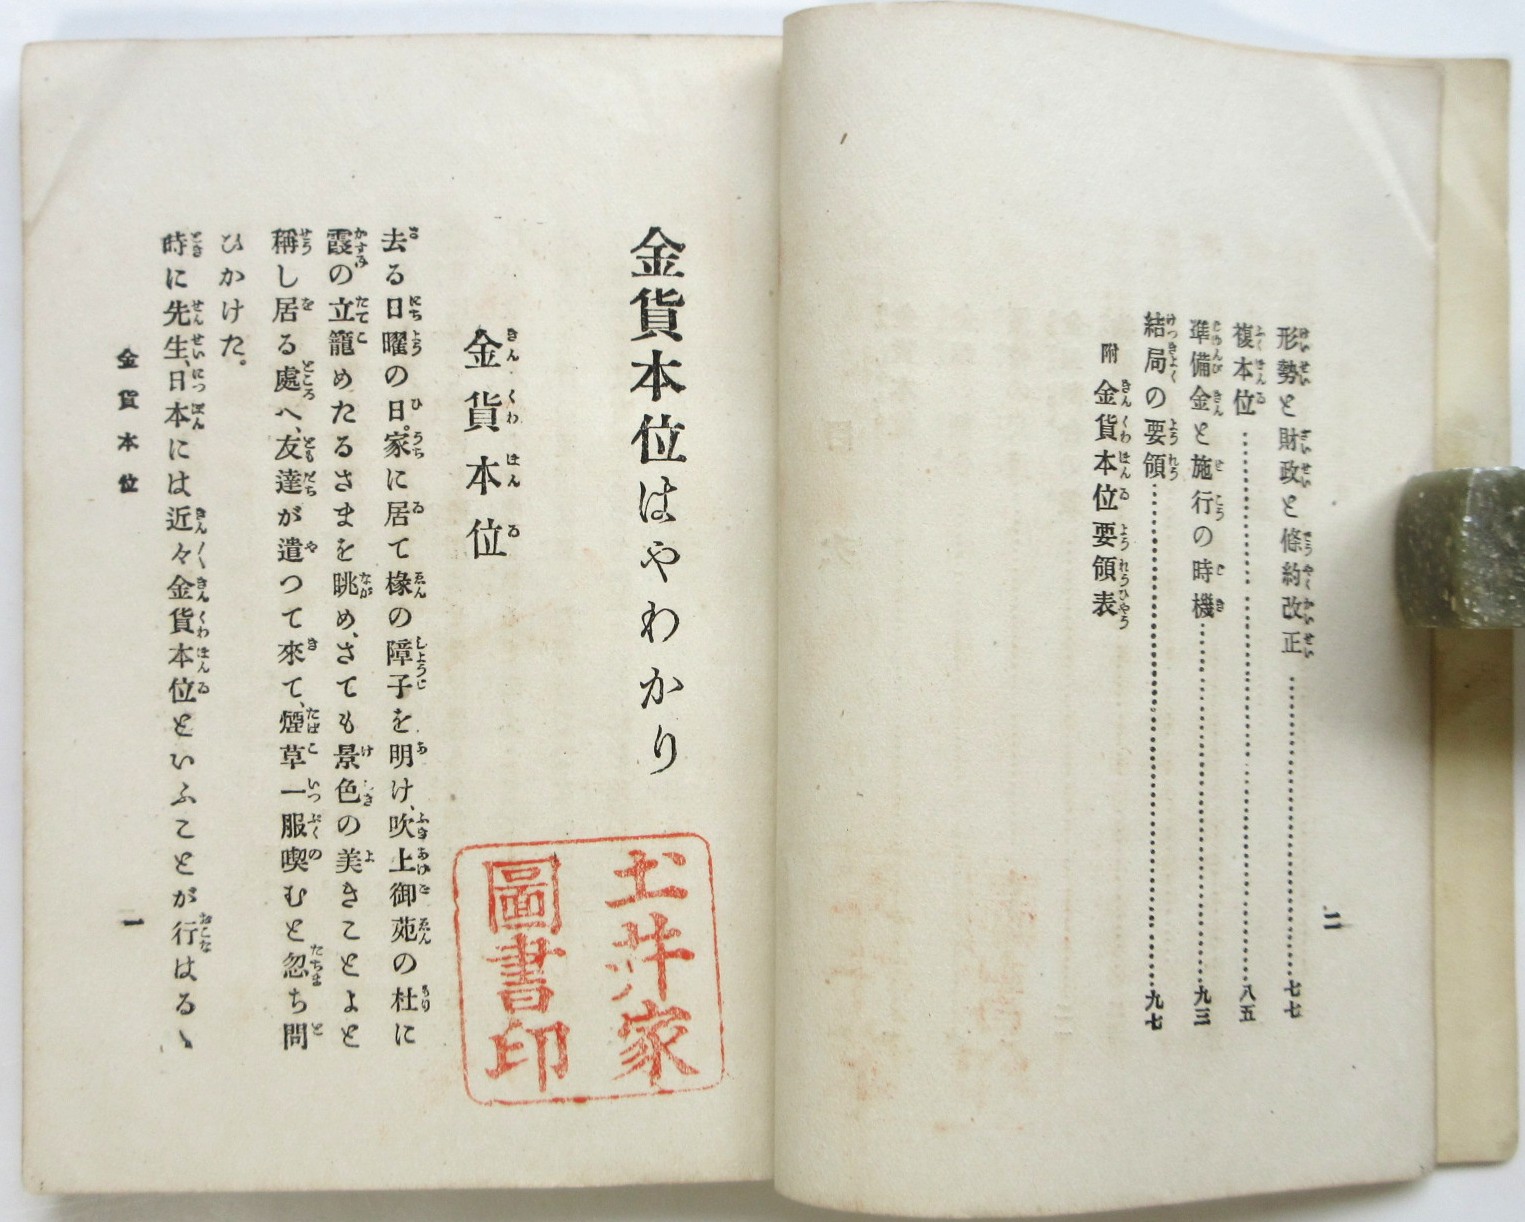 形勢と財政と條約改正……七七
複本位……八五
準備金と施行の時機……九三
結局の要領……九七
附 金貨本位要領表
二
金貨本位はやわかり
金貨本位
去る日曜の日。家に居て椽の障子を明け、吹上御苑の杜に
霞の立籠めたるさまを眺め、さても景色の美きことよと
稱し居る處へ、友達が遣つて來て、煙草一服喫むと忽ち問
ひかけた。
時に先生、日本には近々金貨本位といふことが行はるゝ
金貨本位
一
土井家
圖書印